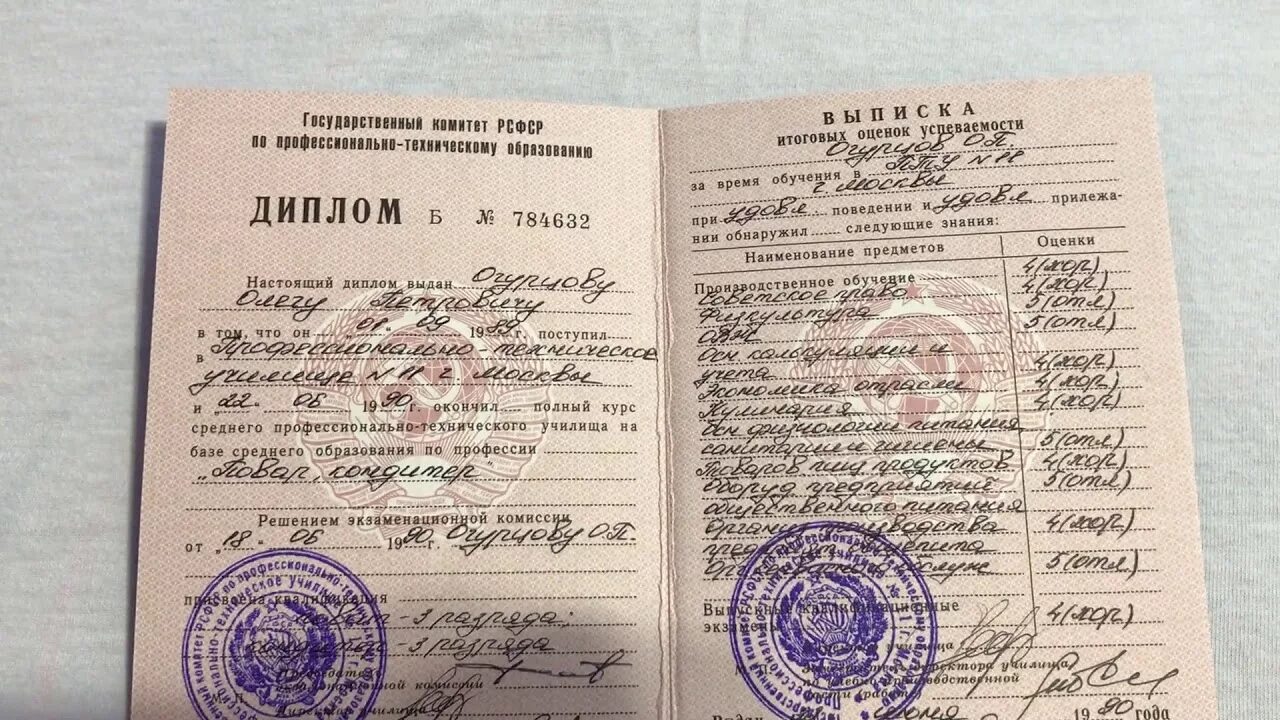 Государственный комитет РСФСР
по профессионально-техническому образованию
ДИПЛОМ Б № 784632
Настоящий диплом выдан Огурцову
Олегу Петровичу
в том, что он 01. 09 1989 г. поступил
в Профессионально-техническое
училище г. Москвы
и „22. 06 1990 г. окончил полный курс
среднего профессионально-технического училища на
базе среднего образования по профессии
„Повар, кондитер"
Решением экзаменационной комиссии
от „18" 06 1990 г. Огурцову О.П.
присвоена квалификация
повар - 3 разряда;
кондитер - 3 разряда
Председатель
экзаменационной комиссии
Директор училища
ВЫПИСКА
итоговых оценок успеваемости
Огурцов О.П.
за время обучения в ПТУ
г. Москвы
при удовл поведении и удовл прилежа-
нии обнаружил следующие знания:
Наименование предметов Оценки
Производственное обучение 4(хор)
Советское право 4(хор)
Физкультура 5(отл)
5(отл)
осн калькуляции и
учета 4(хор)
Экономика отрасли 4(хор)
Кулинария 4(хор)
осн физиологии питания
санитарии и гигиены 5(отл)
Товаров пищ продуктов 4(хор)
Оборуд предприятий 5(отл)
общественного питания
Организ производства 4(хор)
предприят общепита
обслуж 5(отл)
Выпускные квалификационные
экзамены 4(хор)
училища
директора училища
по учебно-производственной
работе
Выдан июня 1990 года